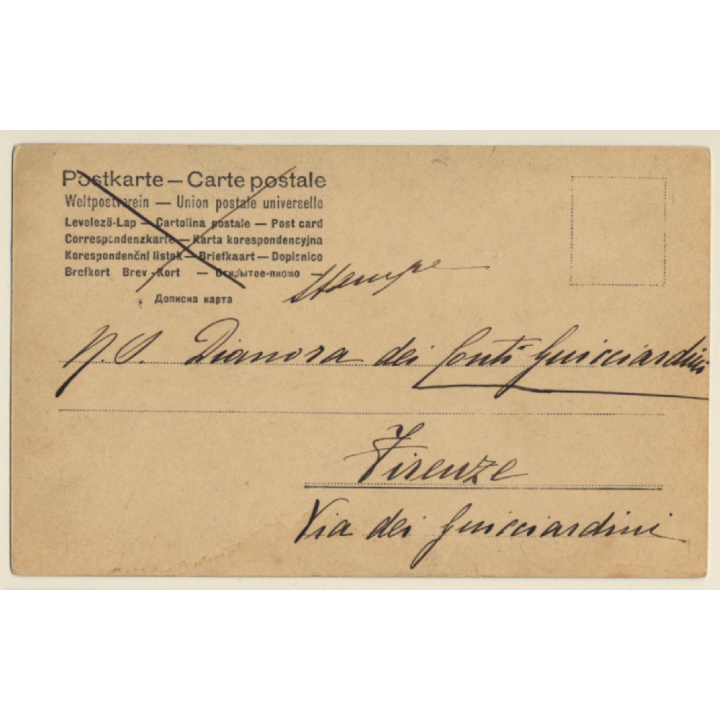 Postkarte — Carte postale
Weltpostverein — Union postale universelle
Levelező-Lap — Cartolina postale — Post card
Correspondenzkarte — Karta korespondencyjna
Korespondenční listek — Briefkaart — Dopisnico
Brefkort Brev-Kort — Открытое-письмо
Дописна карта
Stampe
N. D. Dianora dei Conti Guicciardini
Firenze
Via dei Guicciardini